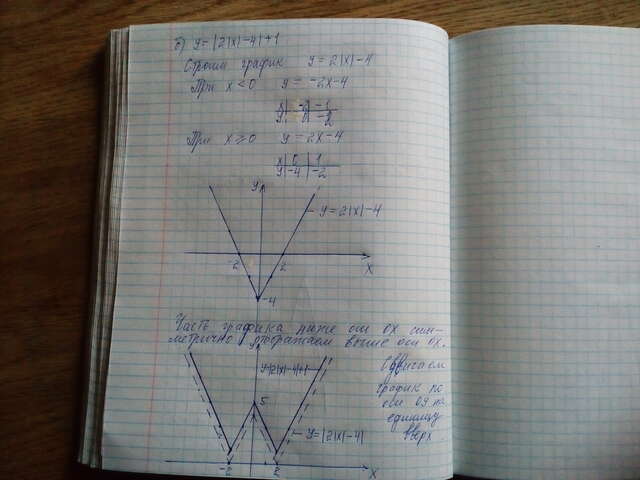 б) y = |2|x|-4|+1
Строим график y = 2|x|-4
При x < 0 y = -2x-4
x | -2 | -1
y | 0 | -2
При x ⩾ 0 y = 2x-4
x | 0 | 1
y | -4 | -2
y
y = 2|x|-4
-2 2 x
-4
Часть графика ниже оси OX сим-
метрично отображаем выше оси OX.
y
y=|2|x|-4|+1
Сдвигаем
график по
оси OY на
единицу
вверх.
5
y=|2|x|-4|
-2 2 x